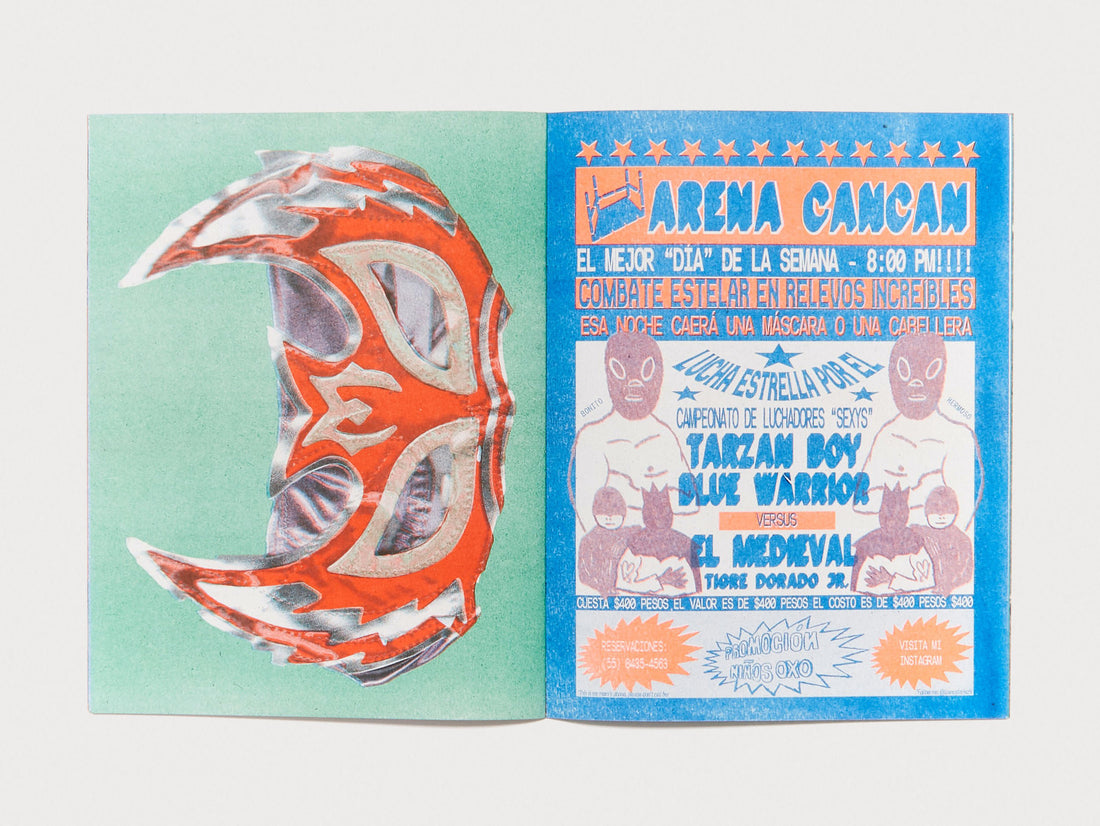 ARENA CANCAN
EL MEJOR “DÍA” DE LA SEMANA - 8:00 PM!!!!
COMBATE ESTELAR EN RELEVOS INCREIBLES
ESA NOCHE CAERÁ UNA MÁSCARA O UNA CABELLERA
LUCHA ESTRELLA POR EL
BONITO
HERMOSO
CAMPEONATO DE LUCHADORES “SEXYS”
TARZAN BOY
BLUE WARRIOR
VERSUS
EL MEDIEVAL
TIGRE DORADO JR.
CUESTA $400 PESOS EL VALOR ES DE $400 PESOS EL COSTO ES DE $400 PESOS $400
RESERVACIONES:
(55) 8435-4563
PROMOCIÓN
NIÑOS OXO
VISITA MI
INSTAGRAM